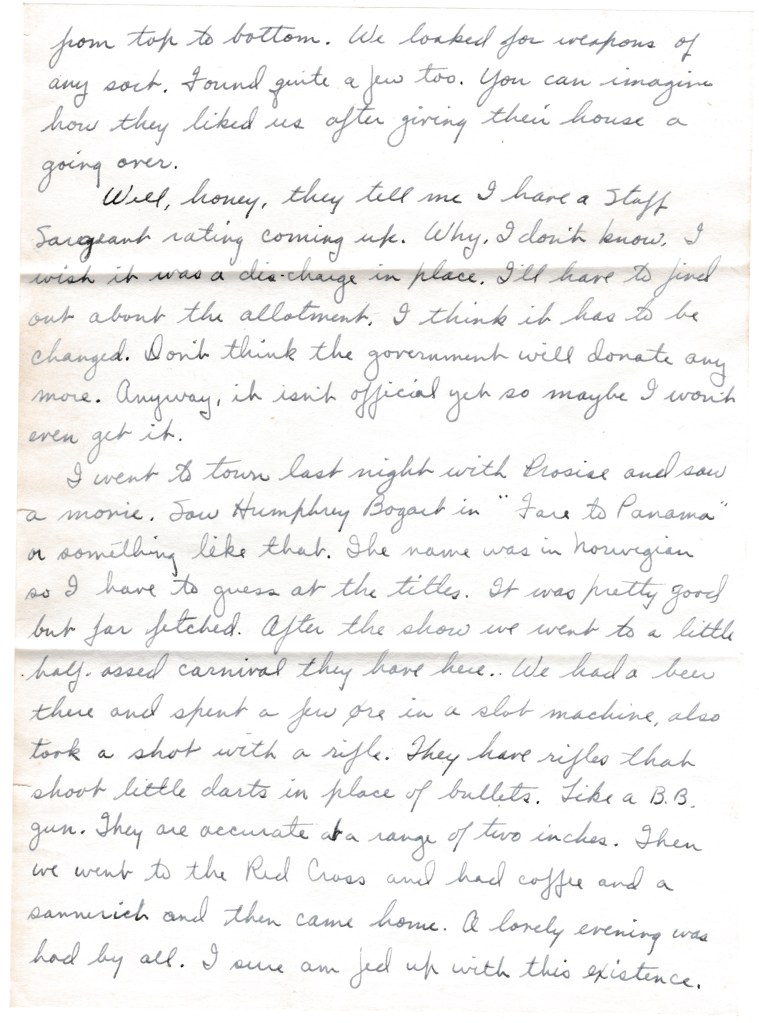 from top to bottom. We looked for weapons of
any sort. Found quite a few too. You can imagine
how they liked us after giving their house a
going over.
Well, honey, they tell me I have a Staff
Sargeant rating coming up. Why, I don't know. I
wish it was a dis-charge in place. I'll have to find
out about the allotment. I think it has to be
changed. Don't think the government will donate any
more. Anyway, it isn't official yet so maybe I won't
even get it.
I went to town last night with Prosise and saw
a movie. Saw Humphrey Bogart in "Fare to Panama"
or something like that. The name was in Norwegian
so I have to guess at the titles. It was pretty good
but far fetched. After the show we went to a little
half-assed carnival they have here. We had a beer
there and spent a few øre in a slot machine, also
took a shot with a rifle. They have rifles that
shoot little darts in place of bullets. Like a B.B.
gun. They are accurate at a range of two inches. Then
we went to the Red Cross and had coffee and a
sannerich and then came home. A lovely evening was
had by all. I sure am fed up with this existence.